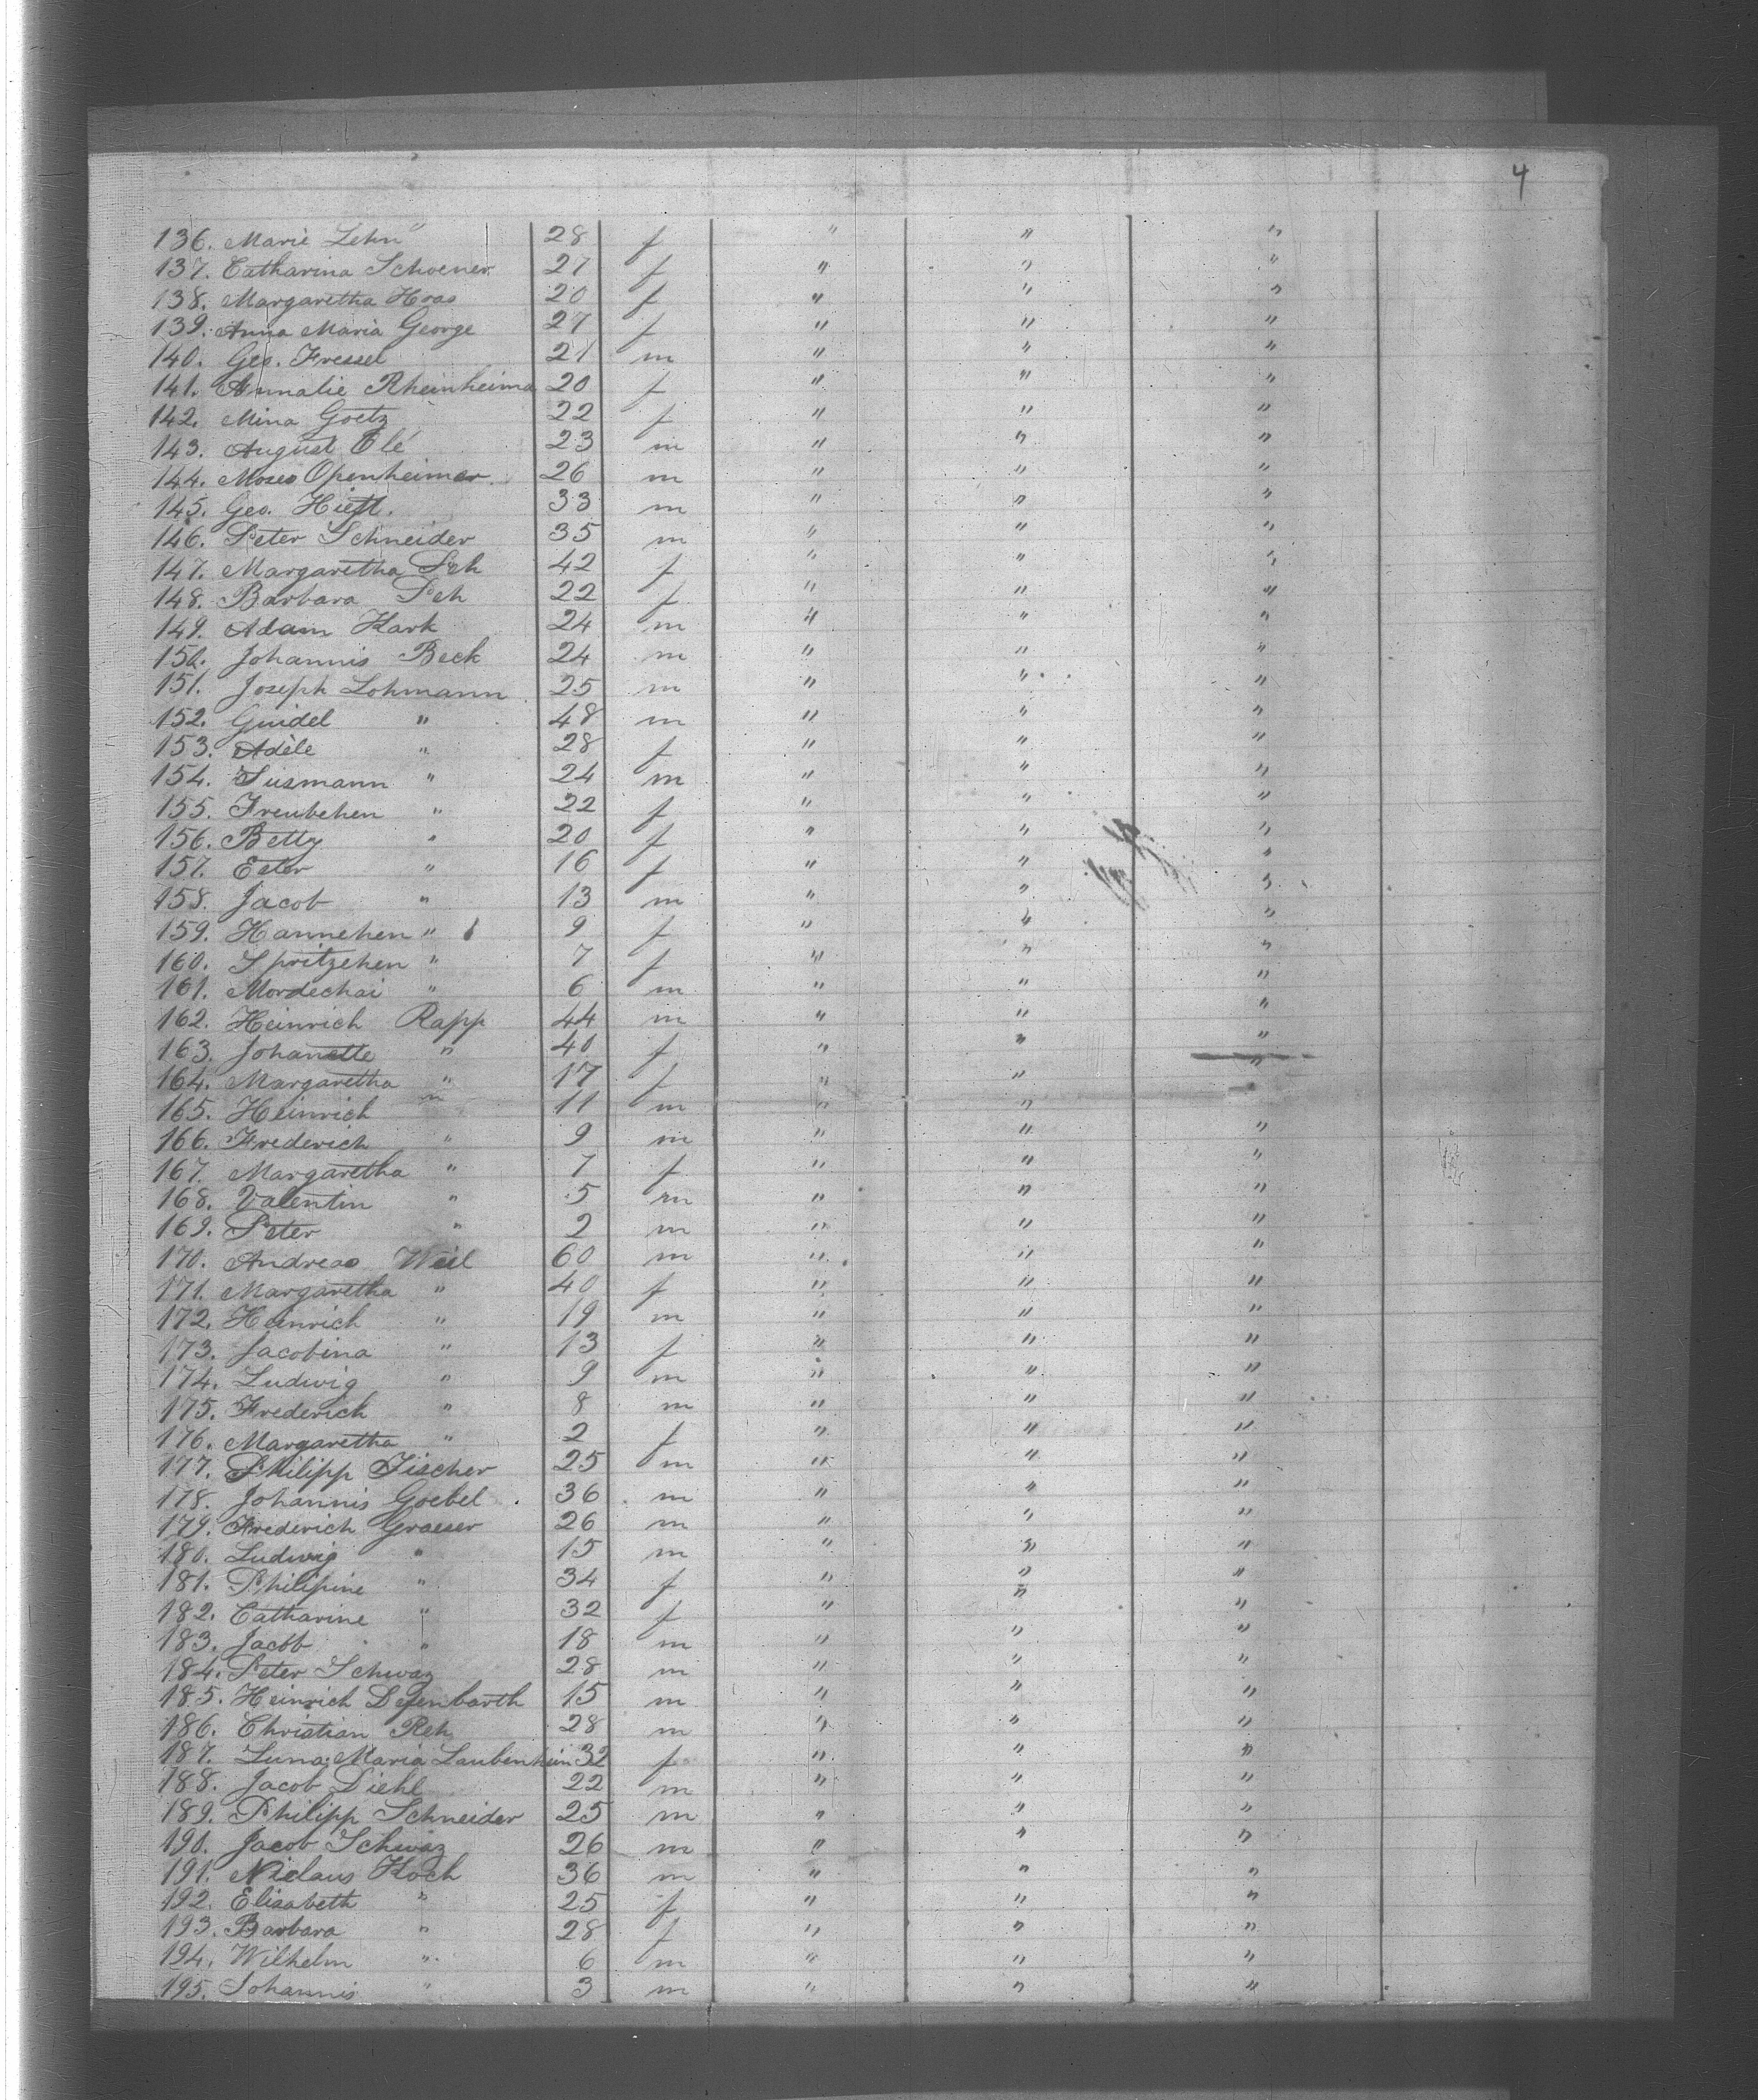 4
136. Marie Lehn " 28 f " " "
137. Catharina Schoener 27 f " " "
138. Margaretha Haas 20 f " " "
139. Anna Maria George 27 f " " "
140. Geo. Fressel 21 m " " "
141. Annalie Rheinheima 20 f " " "
142. Mina Goetz 22 f " " "
143. August Olé 23 m " " "
144. Moses Openheimer 26 m " " "
145. Geo. Hieft. 33 m " " "
146. Peter Schneider 35 m " " "
147. Margaretha Peh 42 f " " "
148. Barbara Peh 22 f " " "
149. Adam Hark 24 m " " "
150. Johannis Beck 24 m " " "
151. Joseph Lohmann 25 m " " "
152. Guidel " 48 m " " "
153. Adèle " 28 f " " "
154. Susmann " 24 m " " "
155. Freubchen " 22 f " " "
156. Betty " 20 f " " "
157. Ester " 16 f " " "
158. Jacob " 13 m " " "
159. Hannchen " 9 f " " "
160. Spritzchen " 7 f " " "
161. Mordechai " 6 m " " "
162. Heinrich Rapp 44 m " " "
163. Johanette " 40 f " " "
164. Margaretha " 17 f " " "
165. Heinrich " 11 m " "
166. Frederich " 9 m " " "
167. Margaretha " 7 f " " "
168. Valentin " 5 m " " "
169. Peter " 2 m " " "
170. Andreas Weil 60 m " " "
171. Margaretha " 40 f " " "
172. Heinrich " 19 m " " "
173. Jacobina " 13 f " " "
174. Ludwig " 9 m " " "
175. Frederich " 8 m " " "
176. Margaretha " 2 f " " "
177. Philipp Fischer 25 m " " "
178. Johannis Goebel 36 m " " "
179. Frederich Graeser 26 m " " "
180. Ludwig " 15 m " " "
181. Philipine " 34 f " " "
182. Catharine " 32 f " " "
183. Jacob " 18 m " " "
184. Peter Schwaz 28 m " " "
185. Heinrich Defenbarth 15 m " " "
186. Christian Reh 28 m " " "
187. Luna Maria Laubenheim 32 f " " "
188. Jacob Diehl 22 m " " "
189. Philipp Schneider 25 m " " "
190. Jacob Schwaz 26 m " " "
191. Niclaus Koch 36 m " " "
192. Elisabeth " 25 f " " "
193. Barbara " 28 f " " "
194. Wilhelm " 6 m " " "
195. Johannis " 3 m " " "